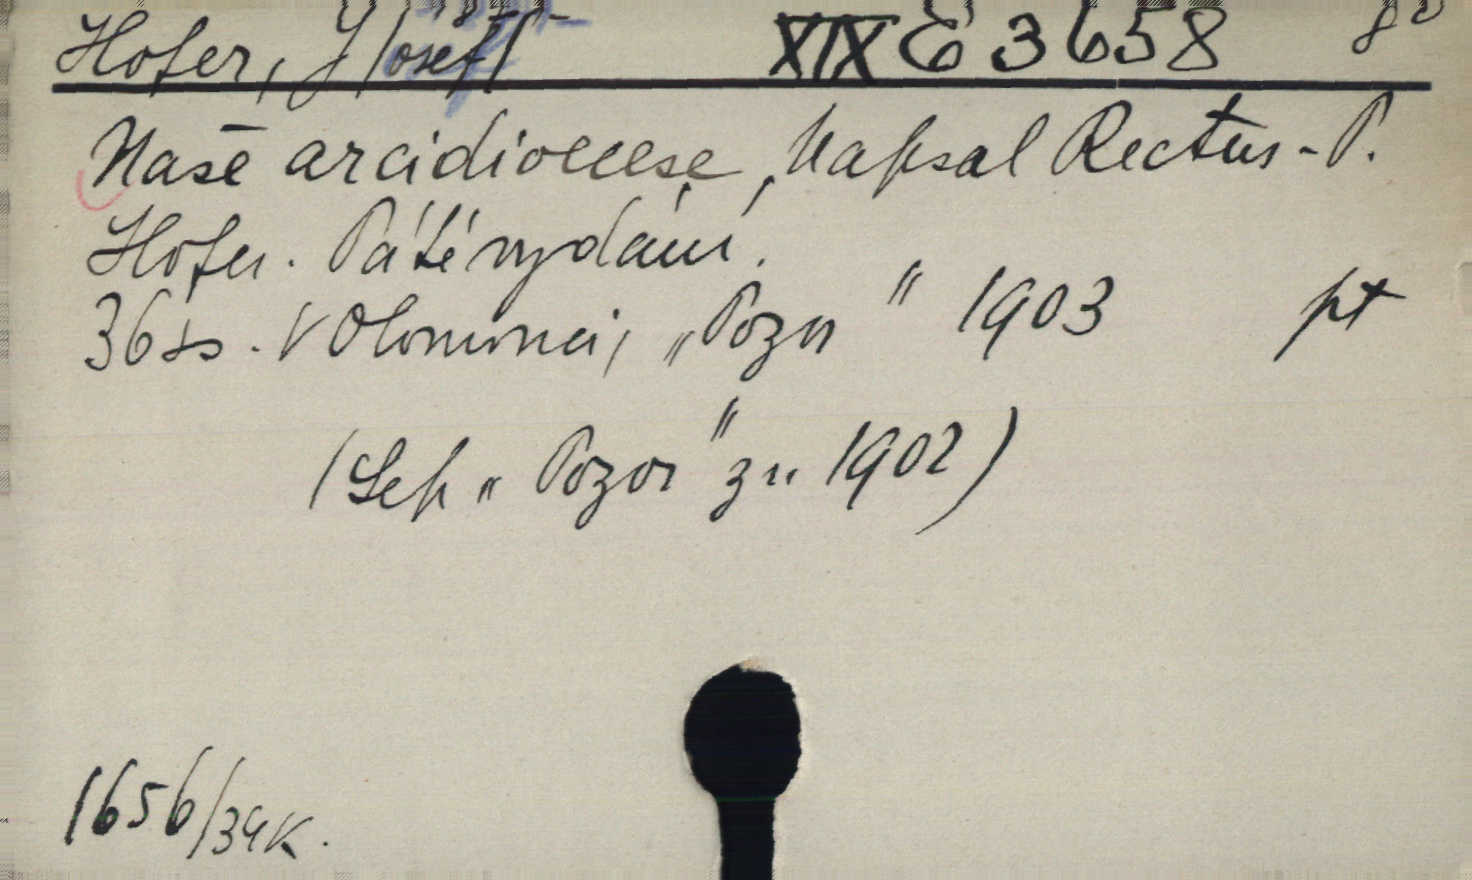 Hofer, J[osef] XIX E 3658 8°
Naše arcidioecese, Napsal Rectus-P.
Hofer. Páté vydání.
36 ss. V Olomouci, „Pozor" 1903 pt
(Sep „Pozor" z r. 1902)
1656/39K.